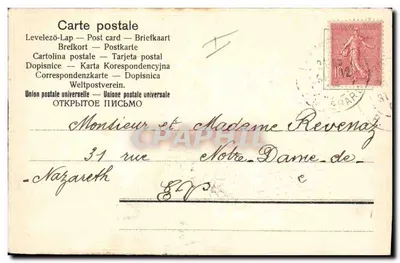 Carte postale
Levelező-Lap — Post card — Briefkaart
Brefkort — Postkarte
Cartolina postale — Tarjeta postal
Dopisnice - Karta Korespondencyjna
Correspondenzkarte - Dopisnica
Weltpostverein.
Union postale universelle — Unione postale universale
ОТКРЫТОЕ ПИСЬМО
Monsieur et Madame Revenaz
31 rue Notre-Dame-de-
Nazareth
E.V.